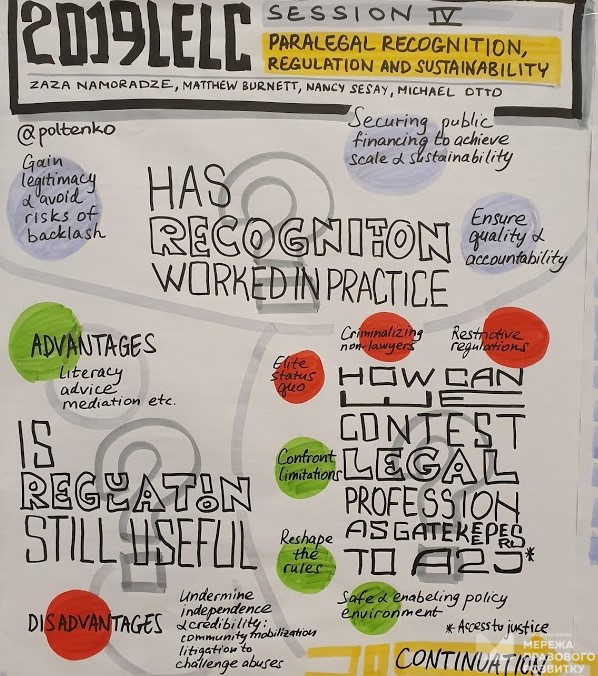 2019LELC
SESSION IV
PARALEGAL RECOGNITION,
REGULATION AND SUSTAINABILITY
ZAZA NAMORADZE, MATTHEW BURNETT, NANCY SESAY, MICHAEL OTTO
@poltenko
Gain
legitimacy
& avoid
risks of
backlash
Securing public
financing to achieve
scale & sustainability
HAS
RECOGNITON
WORKED IN PRACTICE
Ensure
quality &
accountability
ADVANTAGES
literacy
advice
mediation etc.
IS
REGUATION
STILL USEFUL
DISADVANTAGES
Undermine
independence
& credibility:
community mobilization
litigation to
challenge abuses
Criminalizing
non-lawyers
Restrictive
regulations
Elite
status
quo
HOW CAN
WE
CONTEST
LEGAL
PROFESSION
AS GATEKEPEERS
TO A2J*
Confront
limitations
Reshape
the
rules
Safe & enabeling policy
environment
* Access to justice
CONTINUATION
МЕРЕЖА
ПРАВОВОГО
РОЗВИТКУ